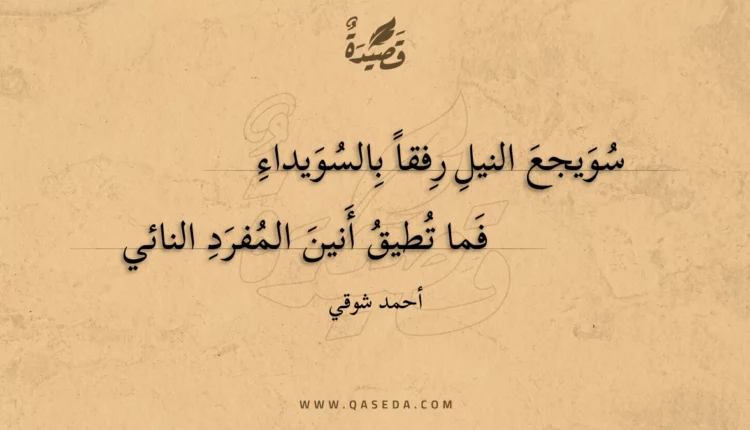 قَصِيدَةٌ
سُوَيجعَ النيلِ رِفقاً بِالسُوَيداءِ
فَما تُطيقُ أَنينَ المُفرَدِ النائي
أحمد شوقي
WWW.QASEDA.COM